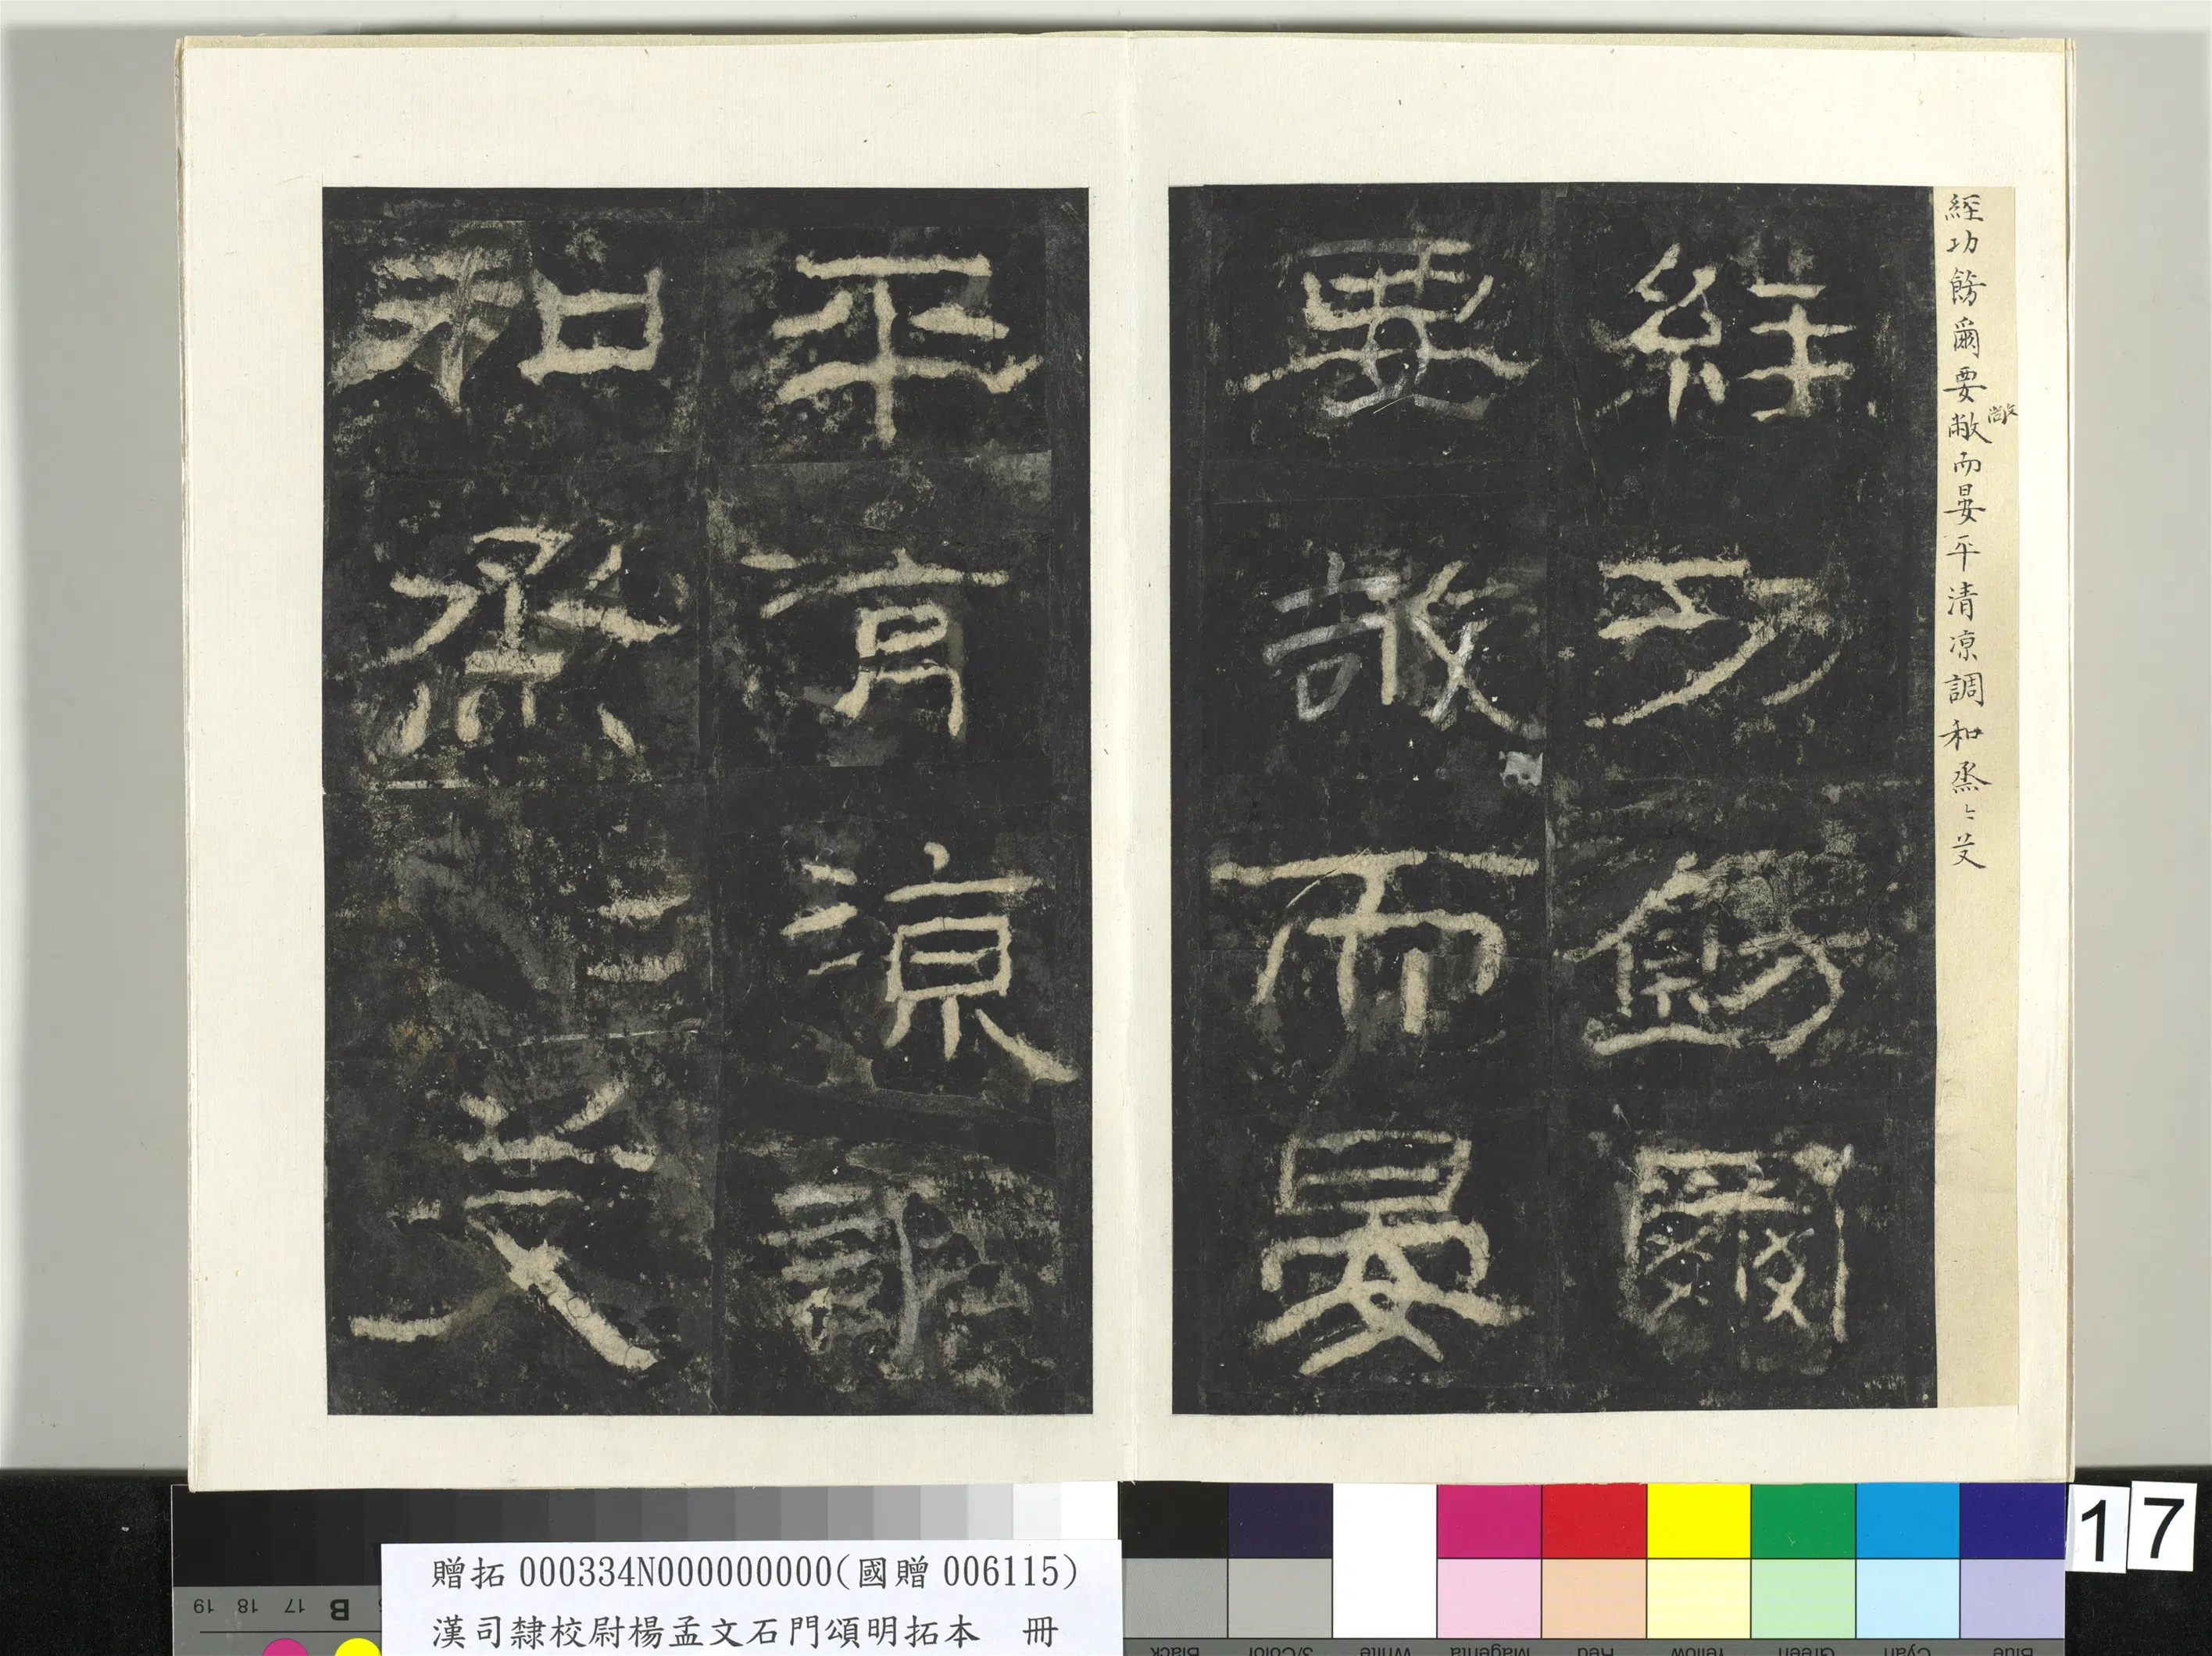 經功飭爾要敞而晏平清涼調和烝〻艾
敞
經功飭爾
要敞而晏
平清涼調
和烝〻艾
贈拓000334N000000000(國贈006115)
漢司隸校尉楊孟文石門頌明拓本 冊
17
19 18 17 B
Black 3/Color White Magenta Red Yellow Green Cyan Blue